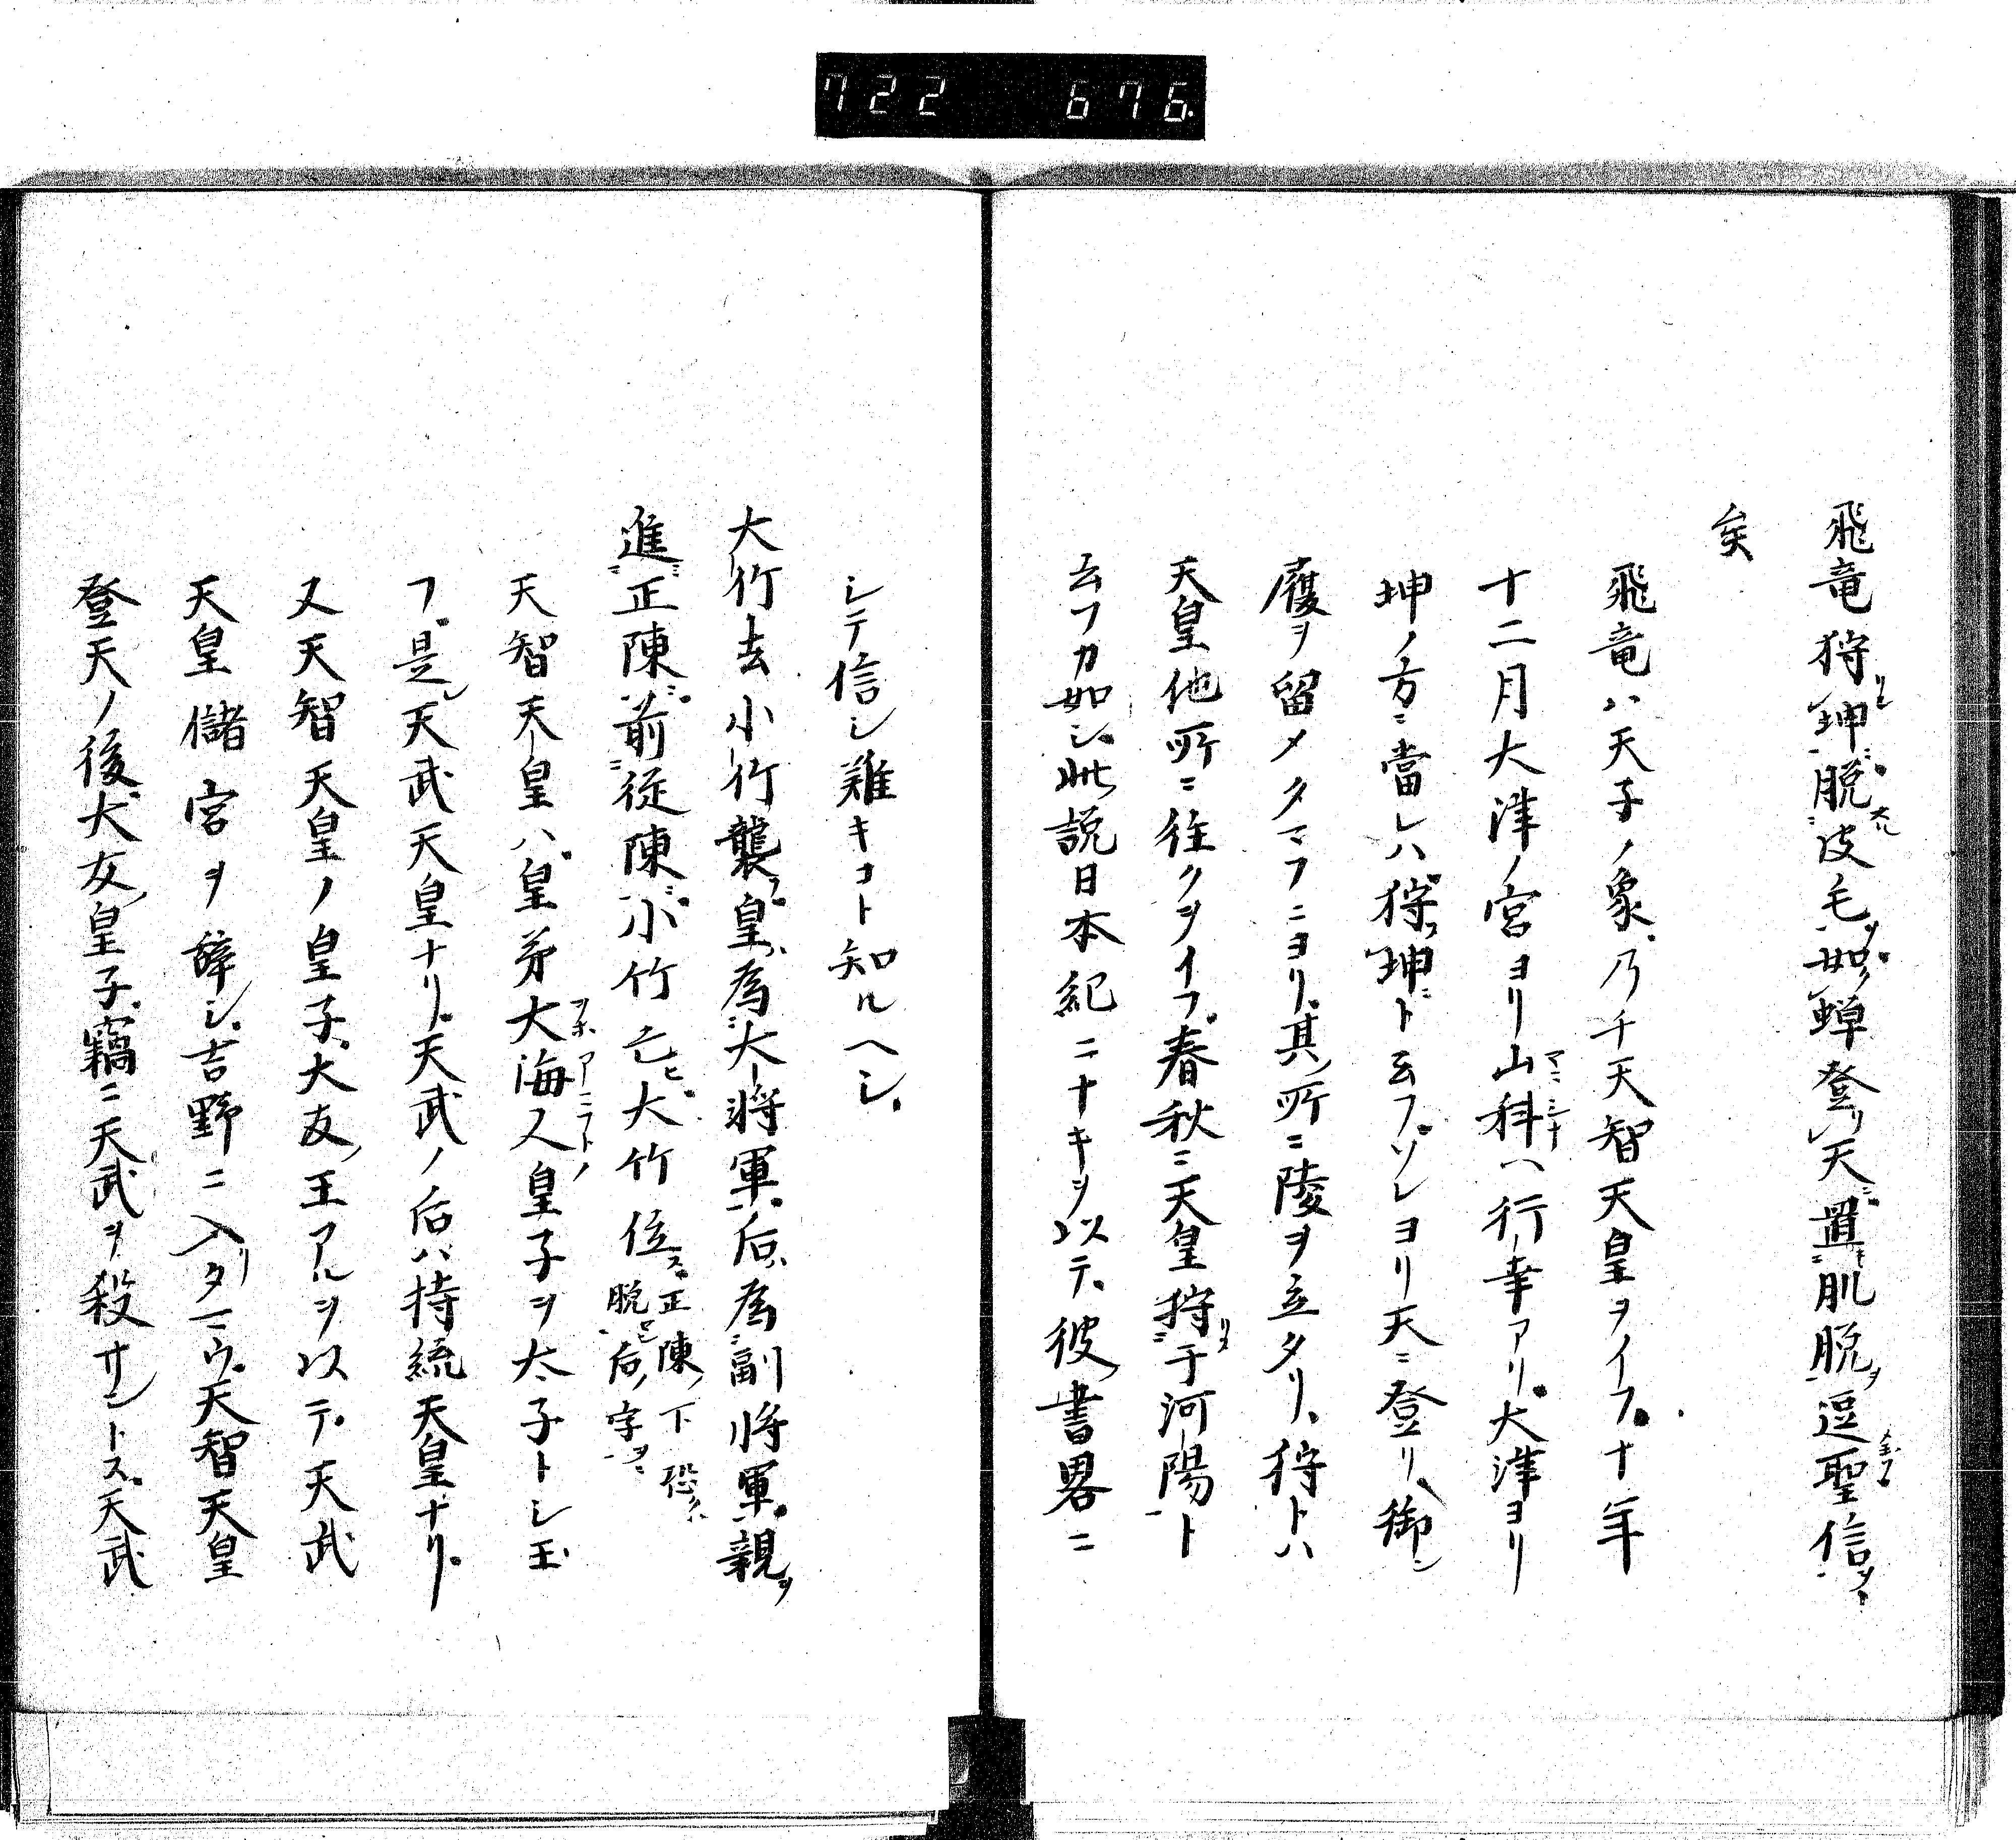 722 676
飛竜狩坤脱皮毛如蝉登天置肌脱逗聖信
矣
飛竜ハ天子ノ象乃チ天智天皇ヲイフ十年
十二月大津ノ宮ヨリ山科ヘ行幸アリ大津ヨリ
坤ノ方ニ當レハ狩坤ト云フソレヨリ天ニ登リ御
履ヲ留メタマフニヨリ其所ニ陵ヲ立タリ狩トハ
天皇他所ニ往クヲイフ春秋ニ天皇狩于河陽ト
云フカ如シ此説日本紀ニナキヲ以テ彼書畧ニ
シテ信シ難キコト知ルヘシ
大竹去小竹襲皇為大將軍后為副将軍親
進正陳前従陳小竹亡大竹位正陳ノ下恐クハ脱后ノ字
天智天皇ハ皇弟大海人皇子ヲ太子トシ玉
フ是天武天皇ナリ天武ノ后ハ持統天皇ナリ
又天智天皇ノ皇子大友王アルヲ以テ天武
天皇儲宮ヲ辞シ吉野ニ入タマウ天智天皇
登天ノ後大友皇子竊ニ天武ヲ殺サントス天武